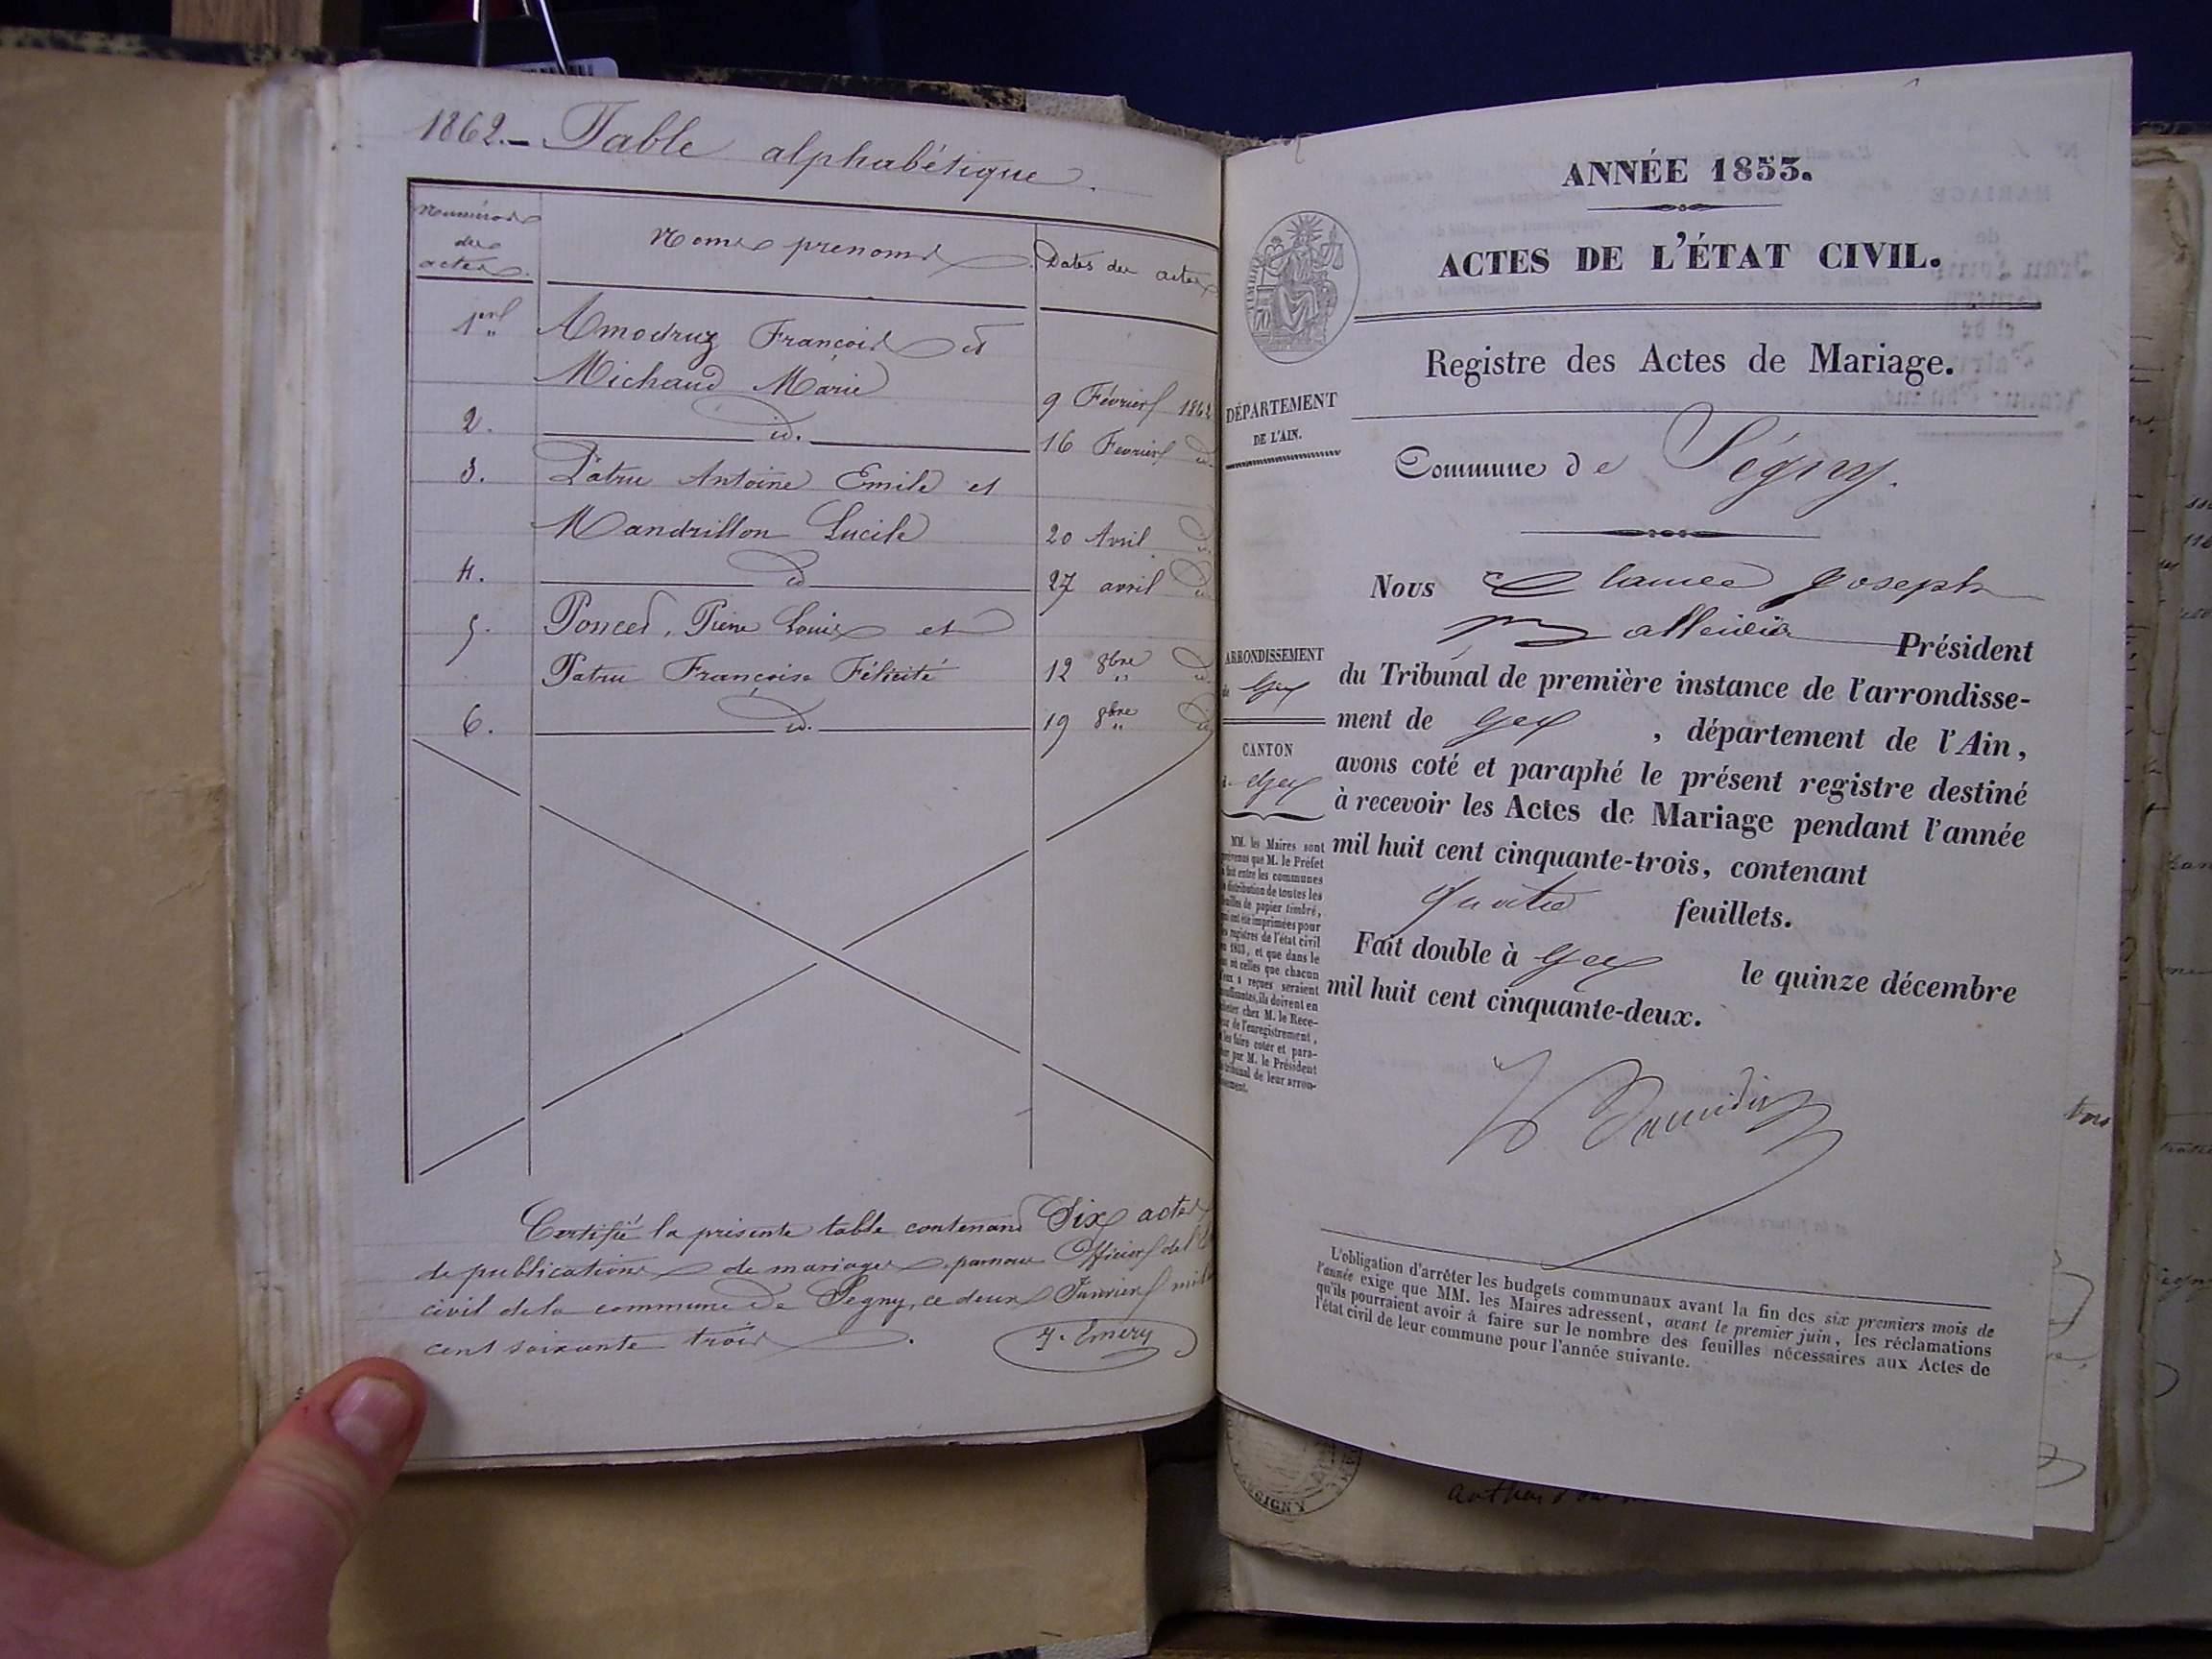 1862. – Table alphabétique.
Numéros
des
actes.
Noms prenoms
Dates des actes
1er
Amodruz François et
Michaud Marie
9 Février 1862
2.
id.
16 Fevrier id.
3.
Patru Antoine Emile et
Mandrillon Lucile
20 Avril id.
4.
id
27 avril id
5.
Poncet, Pierre Louis et
Patru Françoise Félicité
12 8bre id.
6.
id.
19 8bre id
Certifié la présente table contenant Six actes
de publications de mariages par nous Officier de l'
civil de la commune de Segny, ce deux Janvier mil
cent soixante trois.
J. Emery
ANNÉE 1853.
ACTES DE L'ÉTAT CIVIL.
Registre des Actes de Mariage.
DÉPARTEMENT
DE L'AIN.
Commune de Ségny.
Nous Joseph
Président
du Tribunal de première instance de l'arrondisse-
ment de Gex, département de l'Ain,
avons coté et paraphé le présent registre destiné
à recevoir les Actes de Mariage pendant l'année
mil huit cent cinquante-trois, contenant
quatre feuillets.
Fait double à Gex le quinze décembre
mil huit cent cinquante-deux.
ARRONDISSEMENT
de Gex
CANTON
d Gex
MM. les Maires sont
prévenus que M. le Préfet
a fait entre les communes
la distribution de toutes les
feuilles de papier timbré,
qui ont été imprimées pour
les registres de l'état civil
en 1853, et que dans le
cas où celles que chacun
d'eux a reçues seraient
insuffisantes, ils doivent en
acheter chez M. le Rece-
veur de l'enregistrement,
et les faire coter et para-
pher par M. le Président
du tribunal de leur arron-
dissement.
L'obligation d'arrêter les budgets communaux avant la fin des six premiers mois de
l'année exige que MM. les Maires adressent, avant le premier juin, les réclamations
qu'ils pourraient avoir à faire sur le nombre des feuilles nécessaires aux Actes de
l'état civil de leur commune pour l'année suivante.